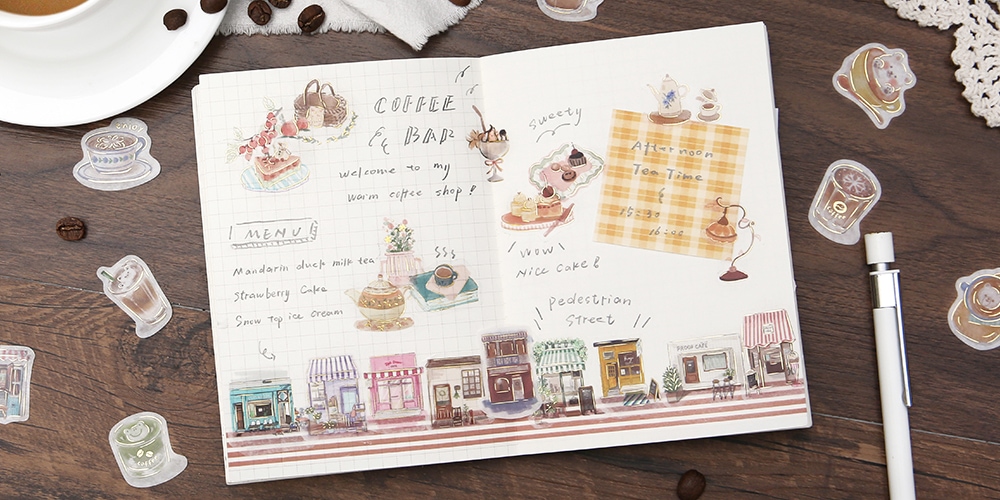 COFFEE
& BAR
welcome to my
warm coffee shop!
MENU
Mandarin duck milk tea
Strawberry Cake
Snow Top ice cream
sweety
Afternoon
Tea Time
&
15:30
16:00
WOW
Nice Cake!
Pedestrian
Street
coffee